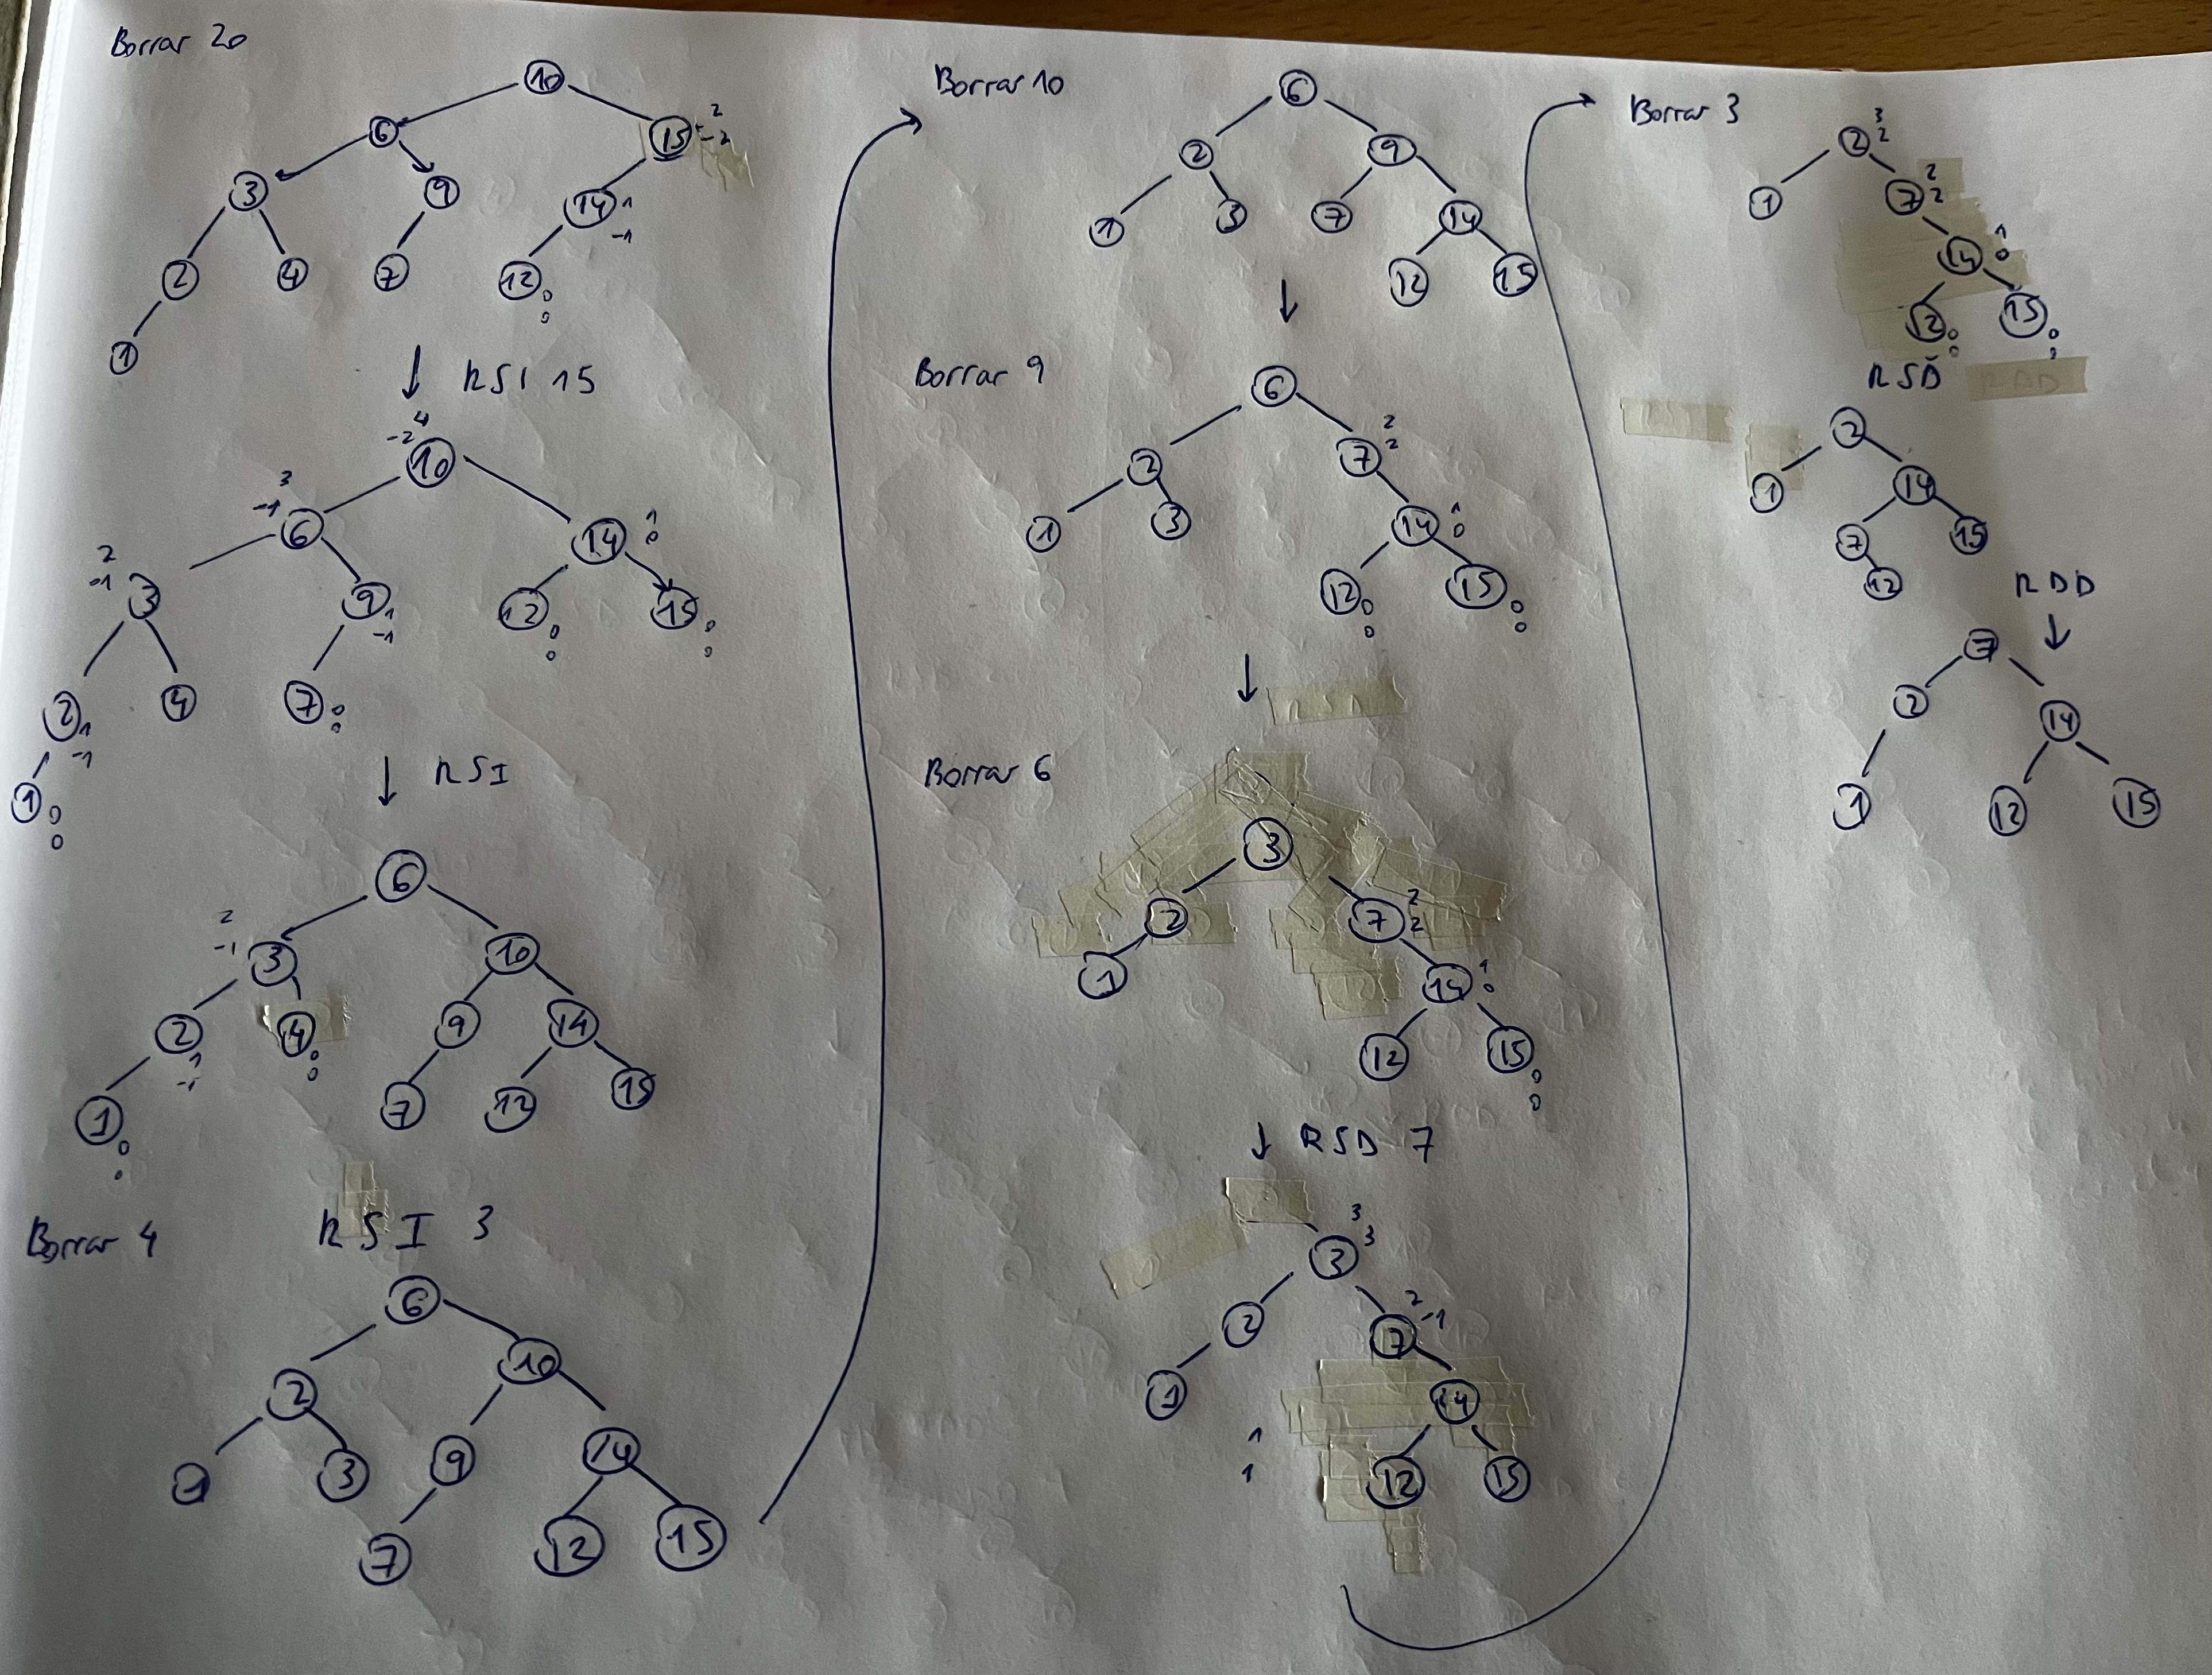 Borrar 20
10
6 15 2 -2
3 9 14 1 -1
2 4 7 12 0 0
1
RSI 15
-2 4 10
-1 3 6 14 1 0
2 -1 3 9 1 -1 12 0 0 15 0 0
2 1 -1 4 7 0 0
1 0 0
RSI
6
2 -1 3 10
2 1 -1 4 0 0 9 14
1 0 0 7 12 15
Borrar 4 RSI 3
6
2 10
1 3 9 14
7 12 15
Borrar 10
6
2 9
1 3 7 14
12 15
Borrar 9
6
2 7 2 2
1 3 14 1 0
12 0 0 15 0 0
Borrar 6
3
2 7 2 2
1 14 1 0
12 15 0 0
RSD 7
3 3 3
2 7 2 -1
1 14
1 1 12 15
Borrar 3
2 3 2
1 7 2 2
14 1 0
12 0 0 15 0 0
RSD RDD
2
1 14
7 15
12
RDD
7
2 14
1 12 15